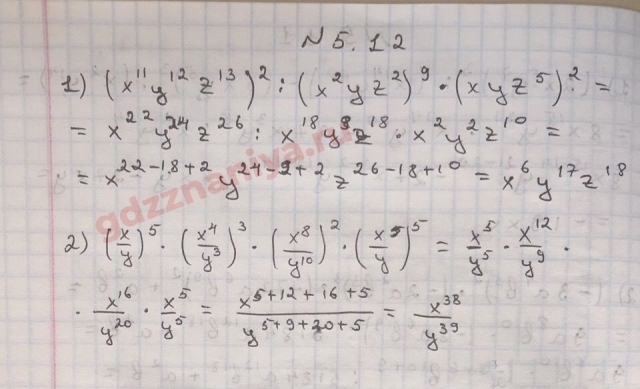 N 5.12
1) (x¹¹y¹²z¹³)² : (x²yz²)⁹ · (xyz⁵)² =
= x²²y²⁴z²⁶ : x¹⁸y⁹z¹⁸ · x²y²z¹⁰ =
= x²²⁻¹⁸⁺² y²⁴⁻⁹⁺² z²⁶⁻¹⁸⁺¹⁰ = x⁶y¹⁷z¹⁸
2) (x/y)⁵ · (x⁴/y³)³ · (x⁸/y¹⁰)² · (x/y)⁵ = x⁵/y⁵ · x¹²/y⁹ ·
· x¹⁶/y²⁰ · x⁵/y⁵ = x⁵⁺¹²⁺¹⁶⁺⁵/y⁵⁺⁹⁺²⁰⁺⁵ = x³⁸/y³⁹
gdzznaniya.ru